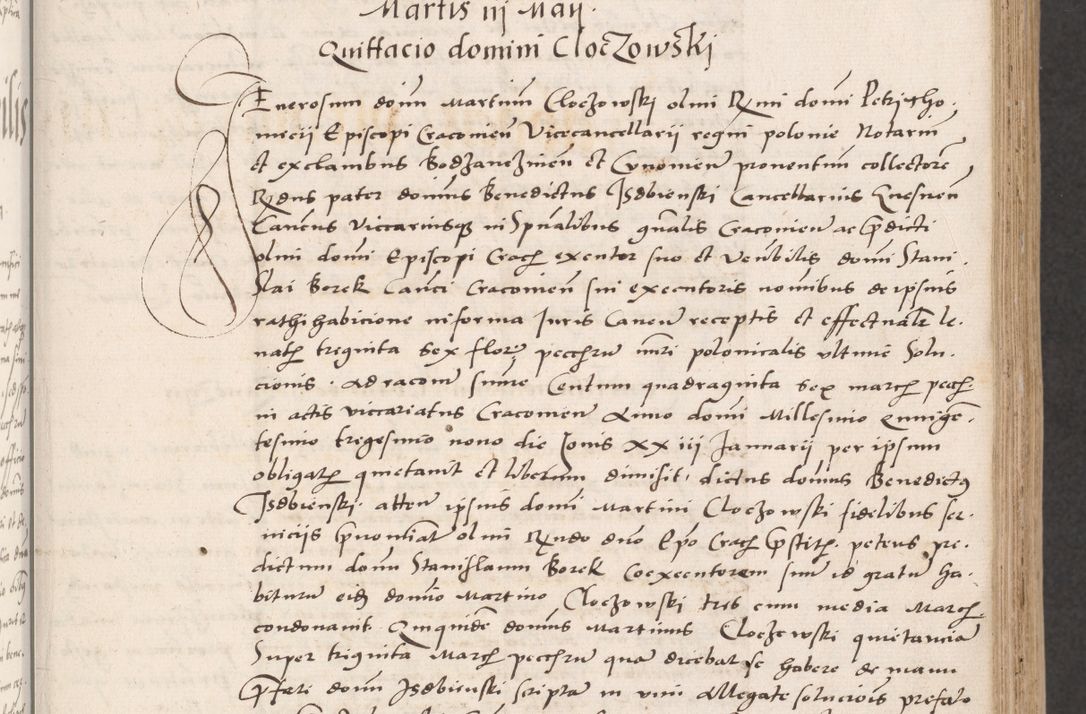 Martis iij Maij.
Quittacio domini Cloczowski
Generosum dominum Martinum Cloczowski olim Rmi domi Petri Tho.
miczij Episcopi Cracovien Vicecancellarij regni polonie Notarium
et exclambus Bodzanczinen et Conomien proventum collectore
Rndus pater dominus Benedictus Isdbienski Cancellarius Gnesnen
Canicus Viccariusque in Spualibus gnalis Cracovien ac predicti
olmi domi Episcopi Cracoviensis executor suo et Venbilis domi Stani.
slai Borek Canci Cracovien sui executoris nominibus de ipsius
rathihabicione in forma Juris Caven receptis et effectualr le.
vatis triginta sex flor pecchru nri polonicalis ultime Solu.
cionis. ad racone sume Centum quadraginta sex march pecch.
in actis vicariatus Cracovien Anno domi Millesimo quinge.
tesimo trigesimo nono die Jovis XXiii Januarij per ipsum
obligatis quietavit et liberum dimisit, dictus domus Benedictus
Isdbienski. atten ipsius domi Martini Cloczowski fidelibus ser.
vicijs Spronliat olmi Rndo dno Epo Crach prestitis. petens pre.
dictum domu Stanislaum Borek Coexecutorem suu id gratu ha.
biturum eidem domino Martino Cloczowski tres cum media March
condonavit. Quiquidem domus Martinus Cloczowski quietancia
Super triginta March pecchru qua dicebat se habere de manu
prefati domi Isdbienski scripta in vim allegate solucionis prefato